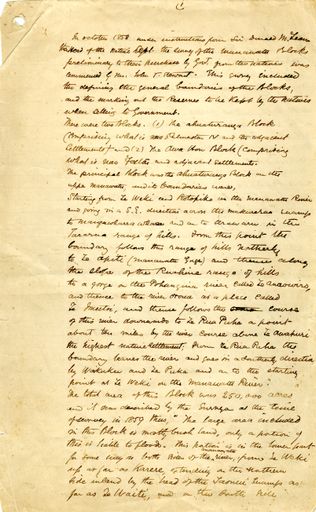 In October 1858 under instructions from Sir Donald McLean
Head of the Native Dept the survey of the Manawatu Blocks
preliminary to their purchase by Govt from the Natives was
commenced by Mr. John T. Stewart. This survey included
the defining the general boundaries of the Blocks,
and the marking out the Reserves to be kept by the Natives
when selling to Government.
There were two Blocks. (1) The Ahuaturanga Block
(comprising what is now Palmerston N and the adjacent
Settlements) and (2) the Awa Hou Block (comprising
what is now Foxton and adjacent settlements.
The principal block was the Ahuaturanga Block in the
upper Manawatu and its boundaries were,
Starting from Te Weki and Rotopiko in the Manawatu River
and going in a S.E. direction across the Makurerua swamp
to and on to in the
Tararua range of hills. From this point the
boundary follows this range of hills Northerly
to Te Apiti (Manawatu Gorge) and thence along
the slope of the Ruahine range of hills
to a gorge on the Pohangina river called Te
and thence to the river Oroua at a place called
Te and thence follows the course
of this river downwards to Te Rua Puha a point
about the miles by the river course above Awahuri
the highest native settlement. From Te Rua Puha the
boundary leaves the river and goes in a Southerly direction
by and Te Puka and on to the starting
point at Te Weki on the Manawatu River.
The total area of this Block was 250,000 acres
and it was described by the Surveyor at the time
of survey in 1859 thus, "The large area included
in this Block is mostly bush land, only a portion of
this is liable to floods. This portion is in the lower part
for some way on both sides of the Manawatu river, from Te Weki
up as far as Karere, extending on the Northern
side inland by the head of the Taonui Swamp as
far as Te Waiti, and on the South side